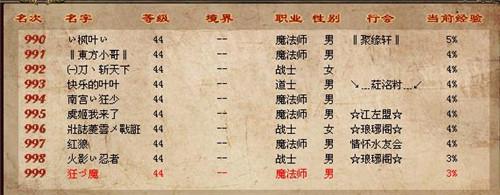 名次 名字 等级 境界 职业 性别 行会 当前经验
990 い枫叶い 44 -- 魔法师 男 ‖聚缘轩‖ 5%
991 ‖東方小哥‖ 44 -- 魔法师 男 4%
992 ㈠刀丶斩天下 44 -- 战士 女 4%
993 快乐的叶叶 44 -- 道士 男 ↘...莊洺籿...↙ 4%
994 南宫い狂少 44 -- 魔法师 男 4%
995 虞姬我来了 44 -- 魔法师 男 ☆江左盟☆ 4%
996 壯誌蔆雲メ戰誑 44 -- 战士 女 ☆琅琊阁☆ 4%
997 红狼 44 -- 魔法师 男 情怀水友会 4%
998 火影い忍者 44 -- 魔法师 男 ☆琅琊阁☆ 3%
999 狂づ魔 44 -- 魔法师 男 3%